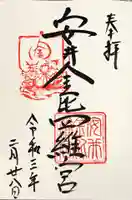 奉拝
安井金毘羅宮
令和三年
二月廿八日